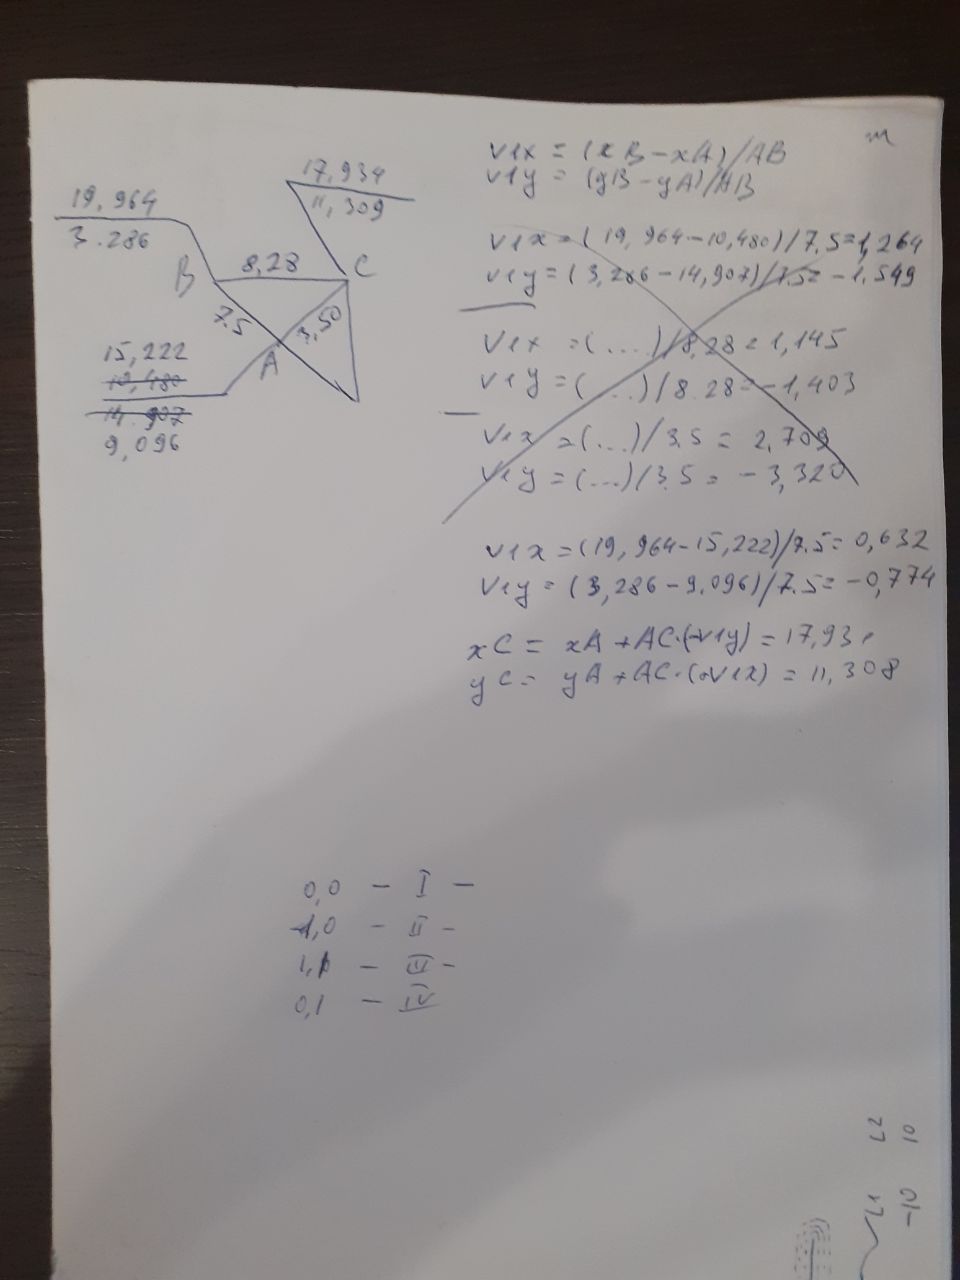 19.964
3.286
17,934
11,309
B
8,28
C
7.5
3,50
A
15,222
10,480
14.907
9,096
m
v1x = (xB-xA)/AB
v1y = (yB-yA)/AB
v1x = (19,964-10,480)/7.5=1,264
v1y = (3,286-14,907)/7.5= -1.549
v1x = (....)/8,28 = 1,145
v1y = (...)/8.28 = -1,403
v1x = (...)/3.5 = 2,709
v1y = (...)/3.5 = -3,320
v1x = (19,964-15,222)/7.5= 0,632
v1y = (3,286-9.096)/7.5= -0,774
xC = xA + AC·(-v1y) = 17,93
yC = yA + AC·(v1x) = 11,308
0,0 - I -
1,0 - II -
1,1 - III -
0,1 - IV